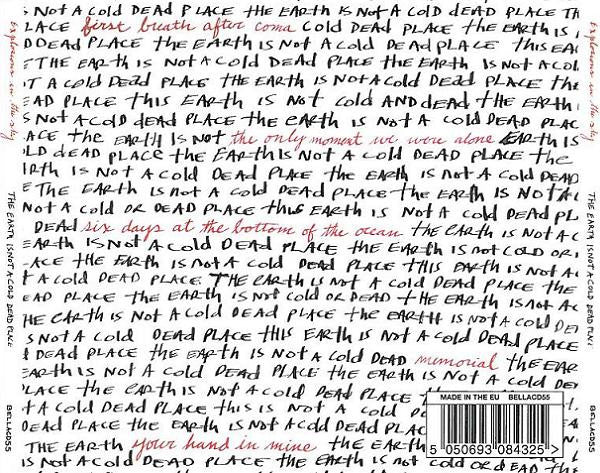 S NOT A COLD DEAD PLACE THE EARTH IS NOT A COLD DEAD PLACE TH
LACE first breath after coma COLD DEAD PLACE THE EARTH IS
DEAD PLACE THE EARTH IS NOT A COLD DEAD PLACE THIS EA
THE EARTH IS NOT A COLD DEAD PLACE THE EARTH IS NOT A COL
T A COLD DEAD PLACE THE EARTH IS NOT A COLD DEAD PLACE THE
EAD PLACE THIS EARTH IS NOT COLD AND DEAD THE EARTH
S NOT A COLD DEAD PLACE THE EARTH IS NOT A COLD DEAD PLAC
ACE THE EARTH IS NOT the only moment we were alone EARTH IS
LD DEAD PLACE THE EARTH IS NOT A COLD DEAD PLACE THE
RTH IS NOT A COLD DEAD PLACE THE EARTH IS NOT A COLD DEAD
E THE EARTH IS NOT A COLD DEAD PLACE THE EARTH IS NOT A
NOT A COLD OR DEAD PLACE THIS EARTH IS NOT A COLD DEAD PL
DEAD six days at the bottom of the ocean THE EARTH IS NOT A C
EARTH IS NOT A COLD DEAD PLACE THE EARTH IS NOT COLD OR
NOT A COLD DEAD PLACE THE EARTH IS NOT A COLD DEAD PLACE THIS EARTH IS NOT A
T A COLD DEAD PLACE THE EARTH IS NOT A COLD DEAD PLACE THE
EAD PLACE THE EARTH IS NOT COLD OR DEAD THE EARTH IS NOT A
HE EARTH IS NOT A COLD DEAD PLACE THE EARTH IS NOT A COLD DE
S NOT A COLD DEAD PLACE THIS EARTH IS NOT A COLD DEAD PLACE
DEAD PLACE THE EARTH IS NOT A COLD DEAD memorial THE EAR
EARTH IS NOT A COLD DEAD PLACE THE EARTH IS NOT A COLD DEA
LACE THE EARTH IS NOT A COLD DEAD PLACE
T A COLD DEAD PLACE THE EARTH IS NOT A COLD DEAD
DEAD PLACE THE EARTH IS NOT A COLD DE
THE EARTH your hand in mine THE EARTH
IS NOT A COLD DEAD PLACE THE EARTH IS NOT COLD OR DEAD TH
MADE IN THE EU BELLACD55
5 050693 084325 >
Explosions in the sky
THE EARTH IS NOT A COLD DEAD PLACE
BELLACD55
Explosions in the sky
THE EARTH IS NOT A COLD DEAD PLACE
BELLACD55